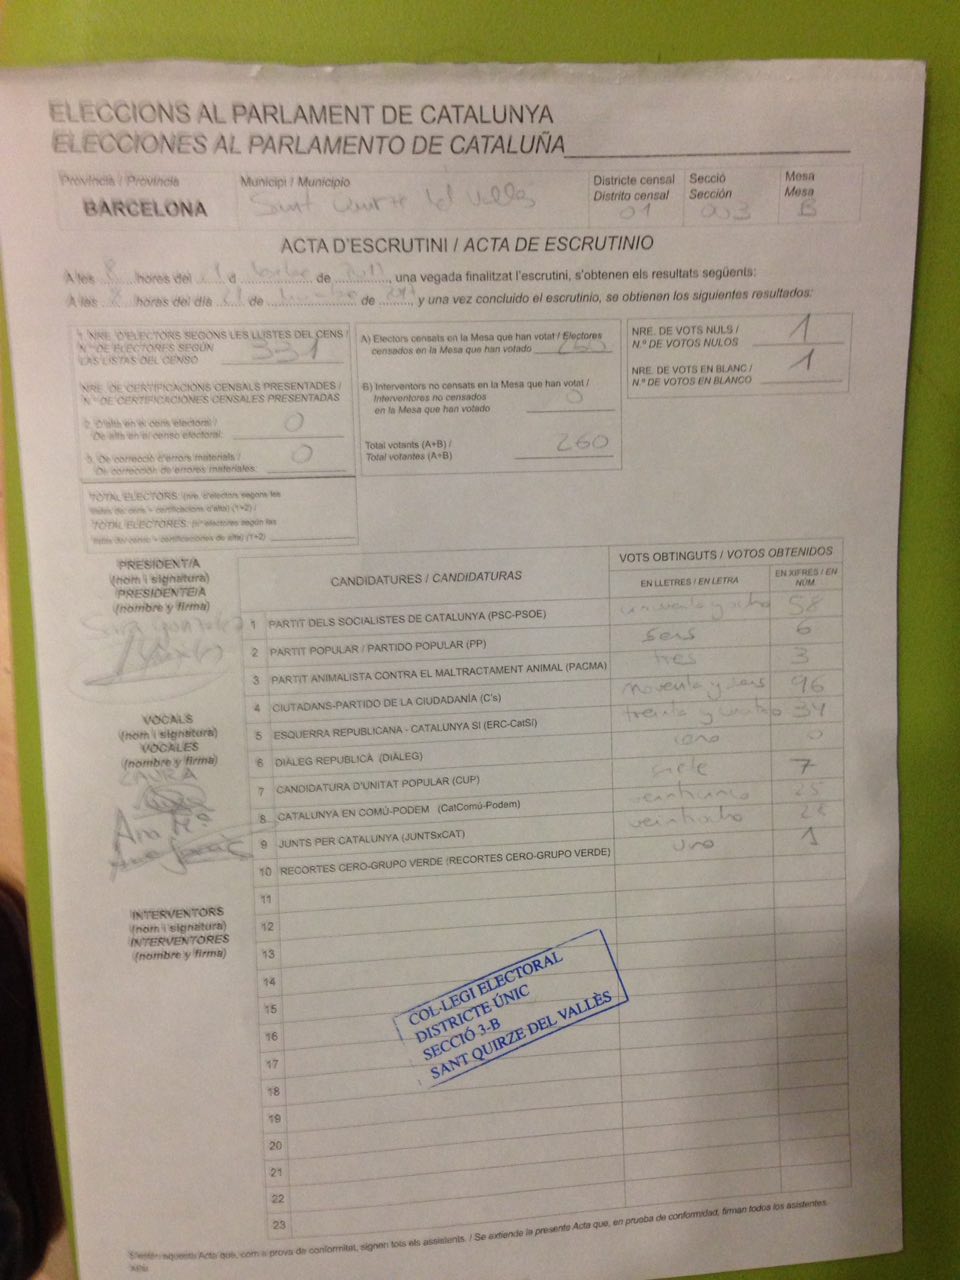 ELECCIONS AL PARLAMENT DE CATALUNYA
ELECCIONES AL PARLAMENTO DE CATALUÑA
Província / Provincia Municipi / Municipio Districte censal Secció Mesa
Distrito censal Sección Mesa
BARCELONA Sant Quirze del Vallès 01 003 B
ACTA D'ESCRUTINI / ACTA DE ESCRUTINIO
A les 8 hores del 21 d de , una vegada finalitzat l'escrutini, s'obtenen els resultats següents:
A las 8 hores del día 21 de de , y una vez concluido el escrutinio, se obtienen los siguientes resultados:
1. NRE. D'ELECTORS SEGONS LES LLISTES DEL CENS /
N.º DE ELECTORES SEGÚN
LAS LISTAS DEL CENSO 331
NRE. DE CERTIFICACIONS CENSALS PRESENTADES /
N.º DE CERTIFICACIONES CENSALES PRESENTADAS
2. D'alta en el cens electoral /
De alta en el censo electoral: 0
3. De correcció d'errors materials /
De corrección de errores materiales: 0
TOTAL ELECTORS: (nre. d'electors segons les
llistes del cens + certificacions d'alta) (1+2) /
TOTAL ELECTORES: (n.º electores según las
listas del censo + certificaciones de alta) (1+2)
A) Electors censats en la Mesa que han votat / Electores
censados en la Mesa que han votado 260
B) Interventors no censats en la Mesa que han votat /
Interventores no censados
en la Mesa que han votado 0
Total votants (A+B) /
Total votantes (A+B) 260
NRE. DE VOTS NULS /
N.º DE VOTOS NULOS 1
NRE. DE VOTS EN BLANC /
N.º DE VOTOS EN BLANCO 1
PRESIDENT/A
(nom i signatura)
PRESIDENTE/A
(nombre y firma)
VOCALS
(nom i signatura)
VOCALES
(nombre y firma)
LAURA
Ana
INTERVENTORS
(nom i signatura)
INTERVENTORES
(nombre y firma)
CANDIDATURES / CANDIDATURAS VOTS OBTINGUTS / VOTOS OBTENIDOS
EN LLETRES / EN LETRA EN XIFRES / EN NÚM.
1 PARTIT DELS SOCIALISTES DE CATALUNYA (PSC-PSOE) cincuenta y ocho 58
2 PARTIT POPULAR / PARTIDO POPULAR (PP) seis 6
3 PARTIT ANIMALISTA CONTRA EL MALTRACTAMENT ANIMAL (PACMA) tres 3
4 CIUTADANS-PARTIDO DE LA CIUDADANÍA (C's) noventa y seis 96
5 ESQUERRA REPUBLICANA - CATALUNYA SÍ (ERC-CatSí) treinta y cuatro 34
6 DIÀLEG REPUBLICÀ (DIÀLEG) cero 0
7 CANDIDATURA D'UNITAT POPULAR (CUP) siete 7
8 CATALUNYA EN COMÚ-PODEM (CatComú-Podem) veinticinco 25
9 JUNTS PER CATALUNYA (JUNTSxCAT) veintiocho 28
10 RECORTES CERO-GRUPO VERDE (RECORTES CERO-GRUPO VERDE) uno 1
11
12
13
14
15
16
17
18
19
20
21
22
23
COL·LEGI ELECTORAL
DISTRICTE ÚNIC
SECCIÓ 3-B
SANT QUIRZE DEL VALLÈS
S'estén aquesta Acta que, com a prova de conformitat, signen tots els assistents. / Se extiende la presente Acta que, en prueba de conformidad, firman todos los asistentes.